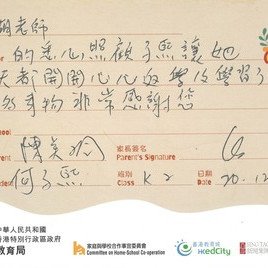 胡老師
的悉心照顧子熙讓她
天都開開心心的學校學習了
多事物非常感謝您
家長簽名
Parent's Signature
何子熙
班別
Class
K.2
日期
Date
20.12
中華人民共和國
香港特別行政區政府
教育局
家庭與學校合作事宜委員會
Committee on Home-School Co-operation
香港教育城
HKedCity